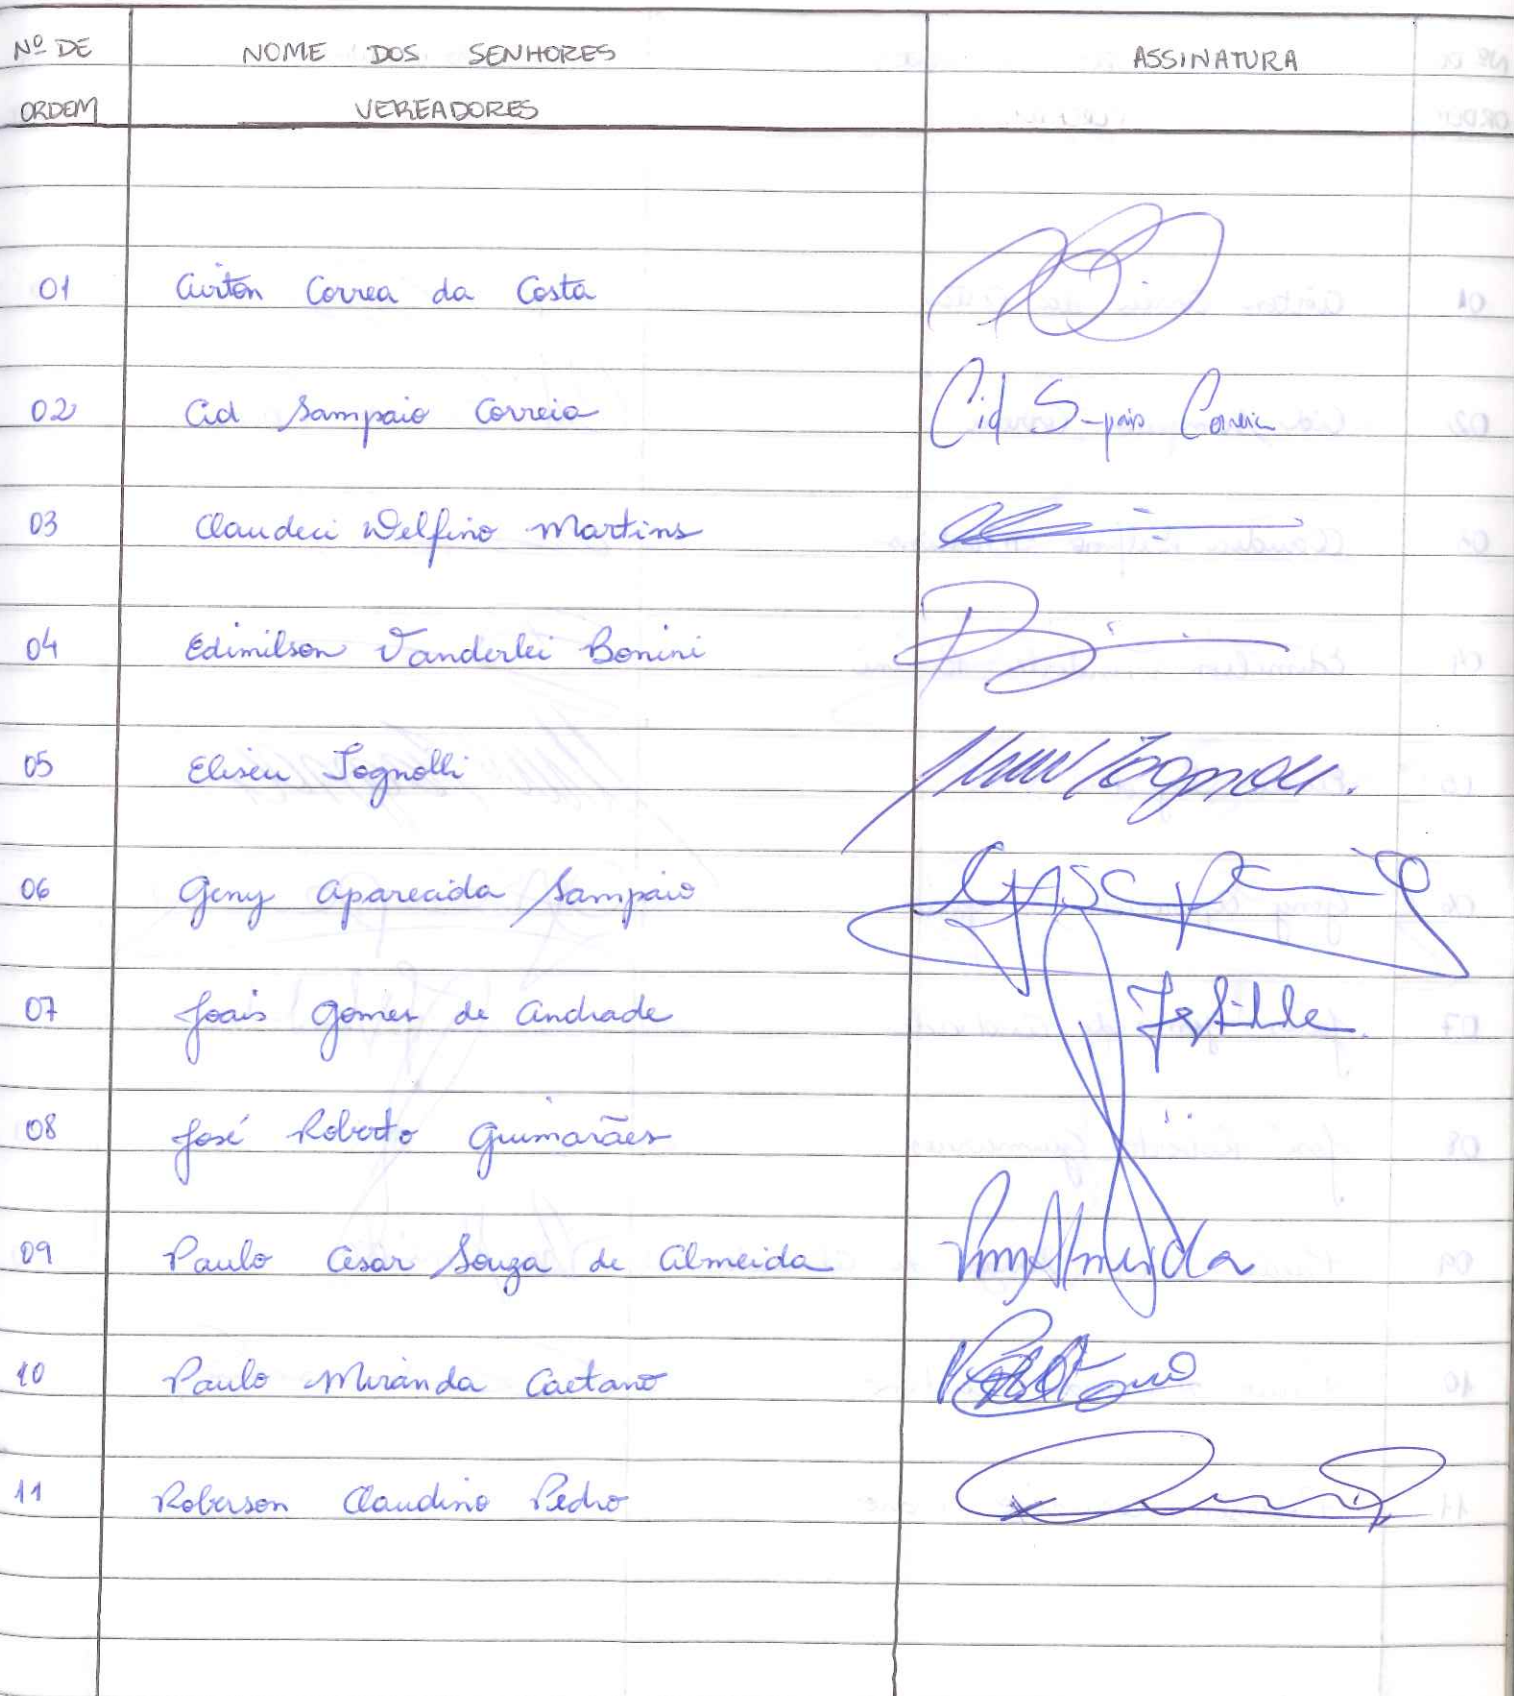 Nº DE NOME DOS SENHORES ASSINATURA
ORDEM VEREADORES
01 Airton Correa da Costa
02 Cid Sampaio Correia Cid S-paio Correia
03 Claudeci Delfino Martins
04 Edimilson Vanderlei Bonini
05 Eliseu Tognolli Tognolli.
06 Geny Aparecida Sampaio
07 Joais Gomes de Andrade
08 José Roberto Guimarães
09 Paulo Cesar Souza de Almeida Almeida
10 Paulo Miranda Caetano
11 Roberson Claudino Pedro